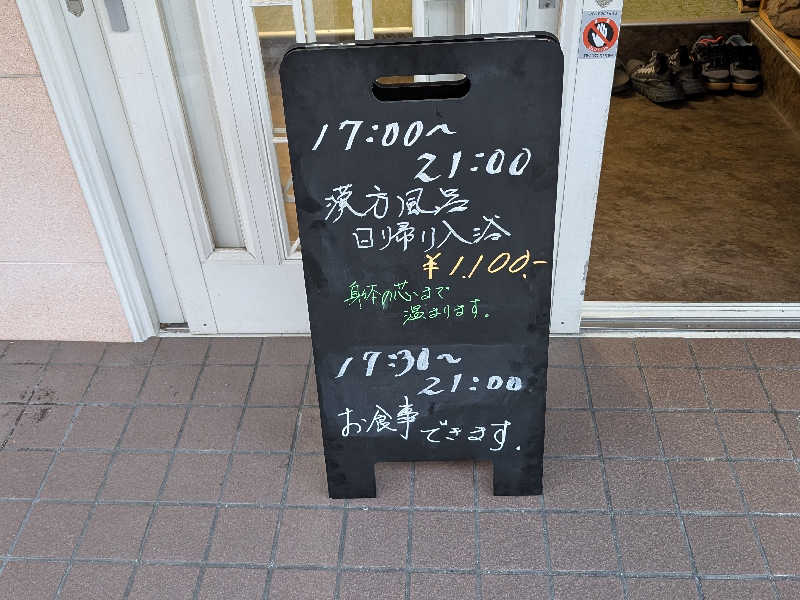 17:00～
21:00
漢方風呂
日帰り入浴
¥1,100.-
身体の芯まで
温まります。
17:30～
21:00
お食事できます.